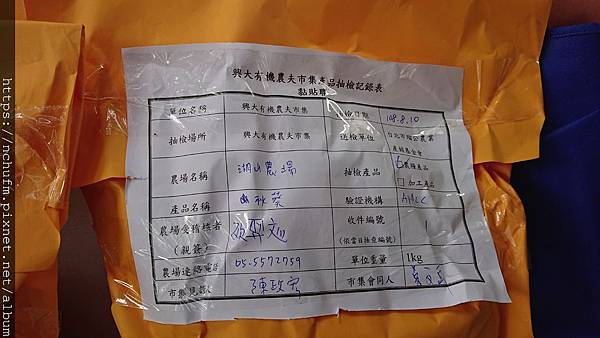 興大有機農夫市集產品抽檢記錄表
黏貼單
單位名稱 興大有機農夫市集 抽檢日期 108.8.10
抽檢場所 興大有機農夫市集 送檢單位 台北市瑠公農業
產銷基金會
農場名稱 湖山農場 抽檢產品 農糧產品
□ 加工產品
產品名稱 秋葵 驗證機構
農場受稽核者 收件編號 1
(親簽) (依當日抽查編號)
農場連絡電話 05-5572759 單位重量 1kg
市集見證人 陳政宏 市集會同人
https://nchufm.pixnet.net/album